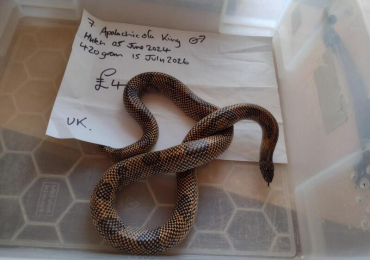 Apalachicola King ♂
Hatch 05 June 2024
420 gram 15 July 2026
£4
UK.